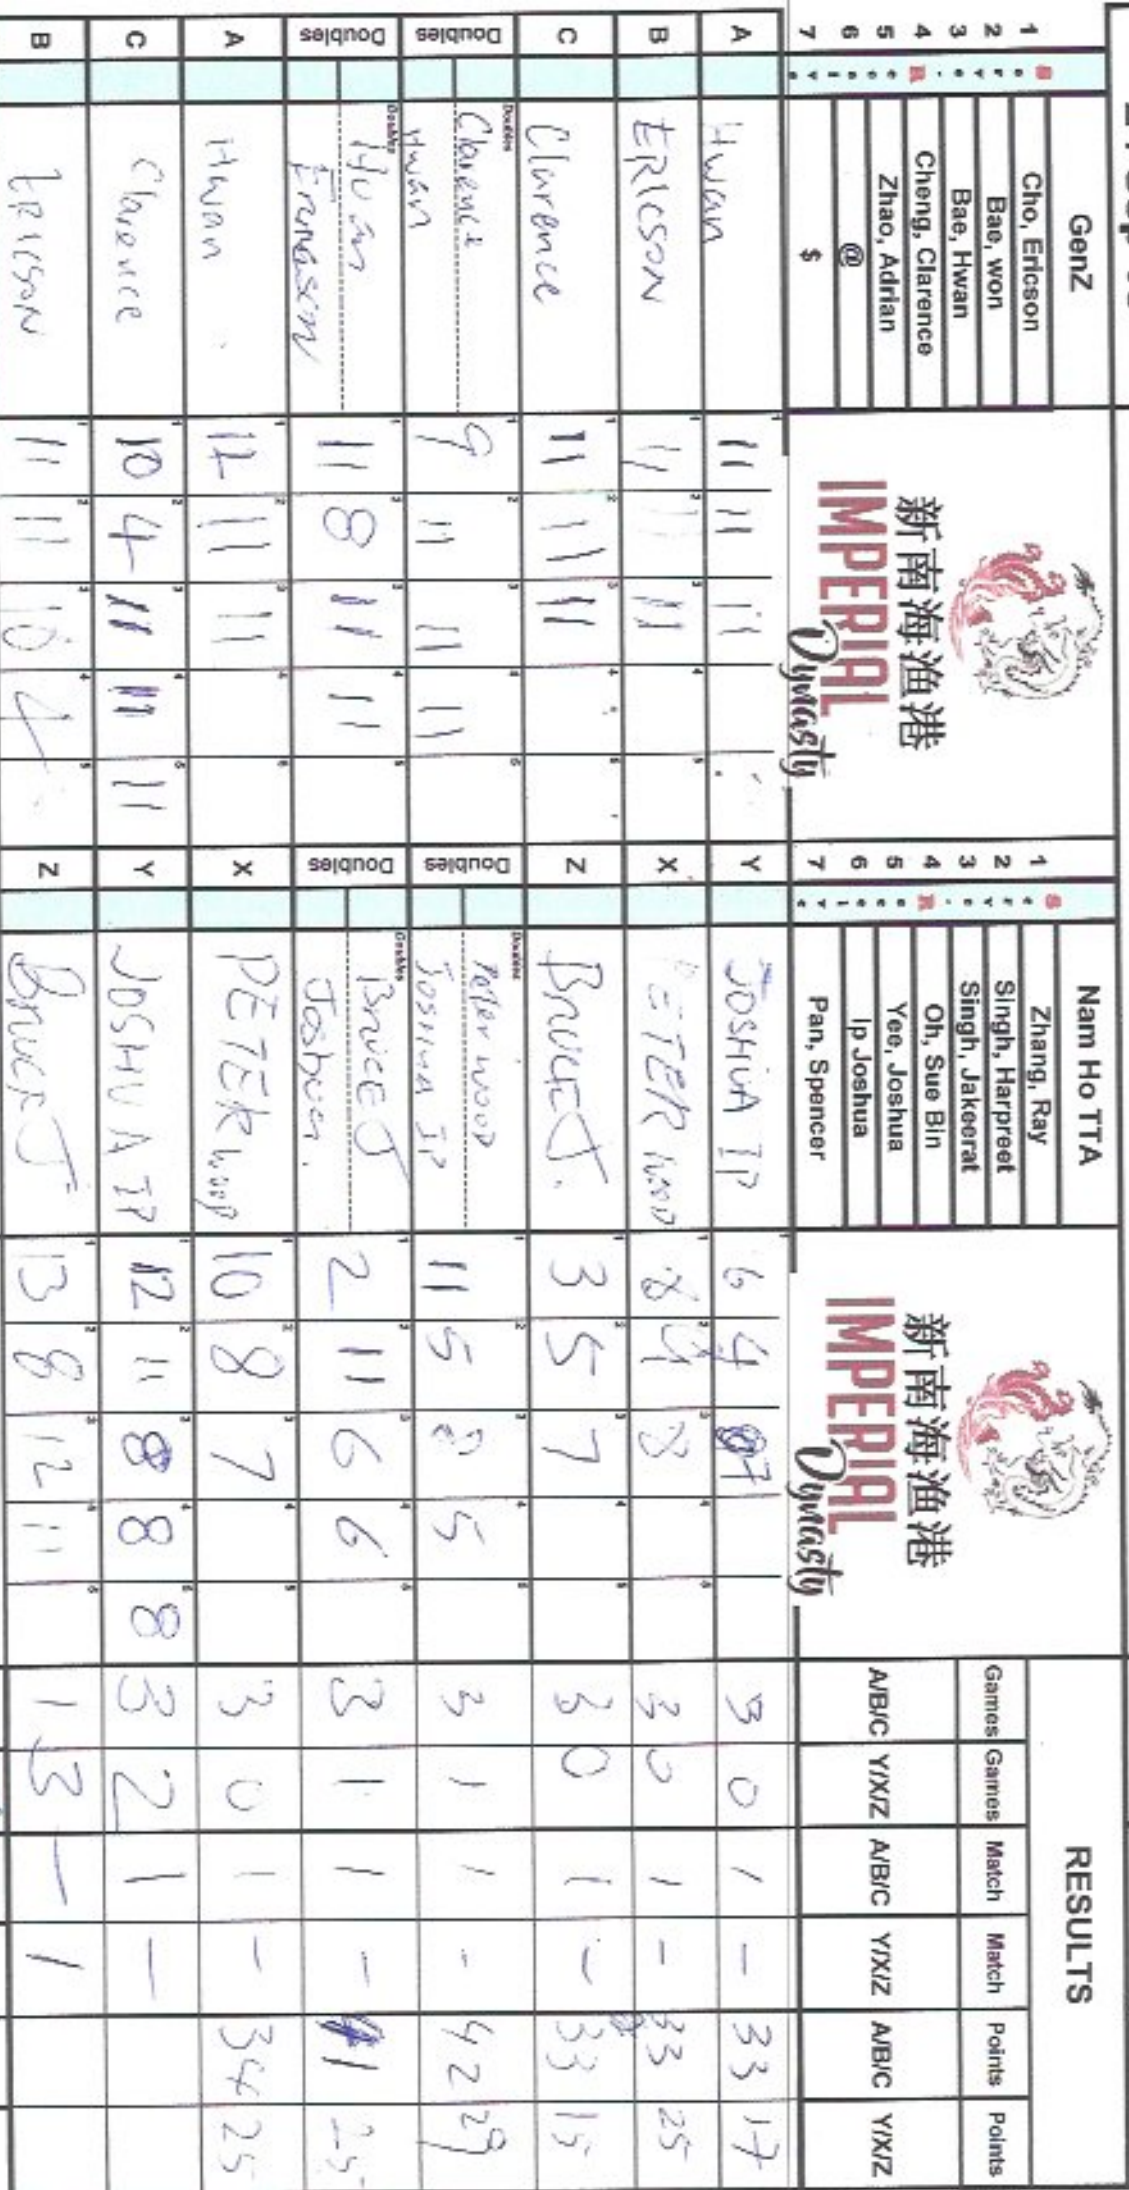 GenZ
1 Cho, Ericson
2 Bae, won
3 Bae, Hwan
4 Cheng, Clarence
5 Zhao, Adrian
6 @
7 $
新南海渔港
IMPERIAL
Dynasty
Nam Ho TTA
1 Zhang, Ray
2 Singh, Harpreet
3 Singh, Jakeerat
4 Oh, Sue Bin
5 Yee, Joshua
6 Ip Joshua
7 Pan, Spencer
新南海渔港
IMPERIAL
Dynasty
RESULTS
Games Games Match Match Points Points
A/B/C Y/X/Z A/B/C Y/X/Z A/B/C Y/X/Z
A Hwan 11 11 11 Y JOSHUA IP 6 4 7 3 0 1 - 33 17
B ERICSON 11 11 11 X PETER WOO 8 9 8 3 0 1 - 33 25
C Clarence 11 11 11 Z BRUCE J. 3 5 7 3 0 1 - 33 15
Doubles Clarence & Hwan 9 11 11 11 Doubles Peter WOO JOSHUA IP 11 5 8 5 3 1 1 - 42 29
Doubles Hwan 11 8 11 11 Doubles BRUCE J Joshua. 2 11 6 6 3 1 1 - 25
A Hwan 12 11 11 X PETER WOO 10 8 7 3 0 1 - 34 25
C Clarence 10 4 11 11 11 Y JOSHUA IP 12 11 8 8 8 3 2 1 -
B ERICSON 11 11 10 4 Z BRUCE J 13 8 12 11 1 3 - 1